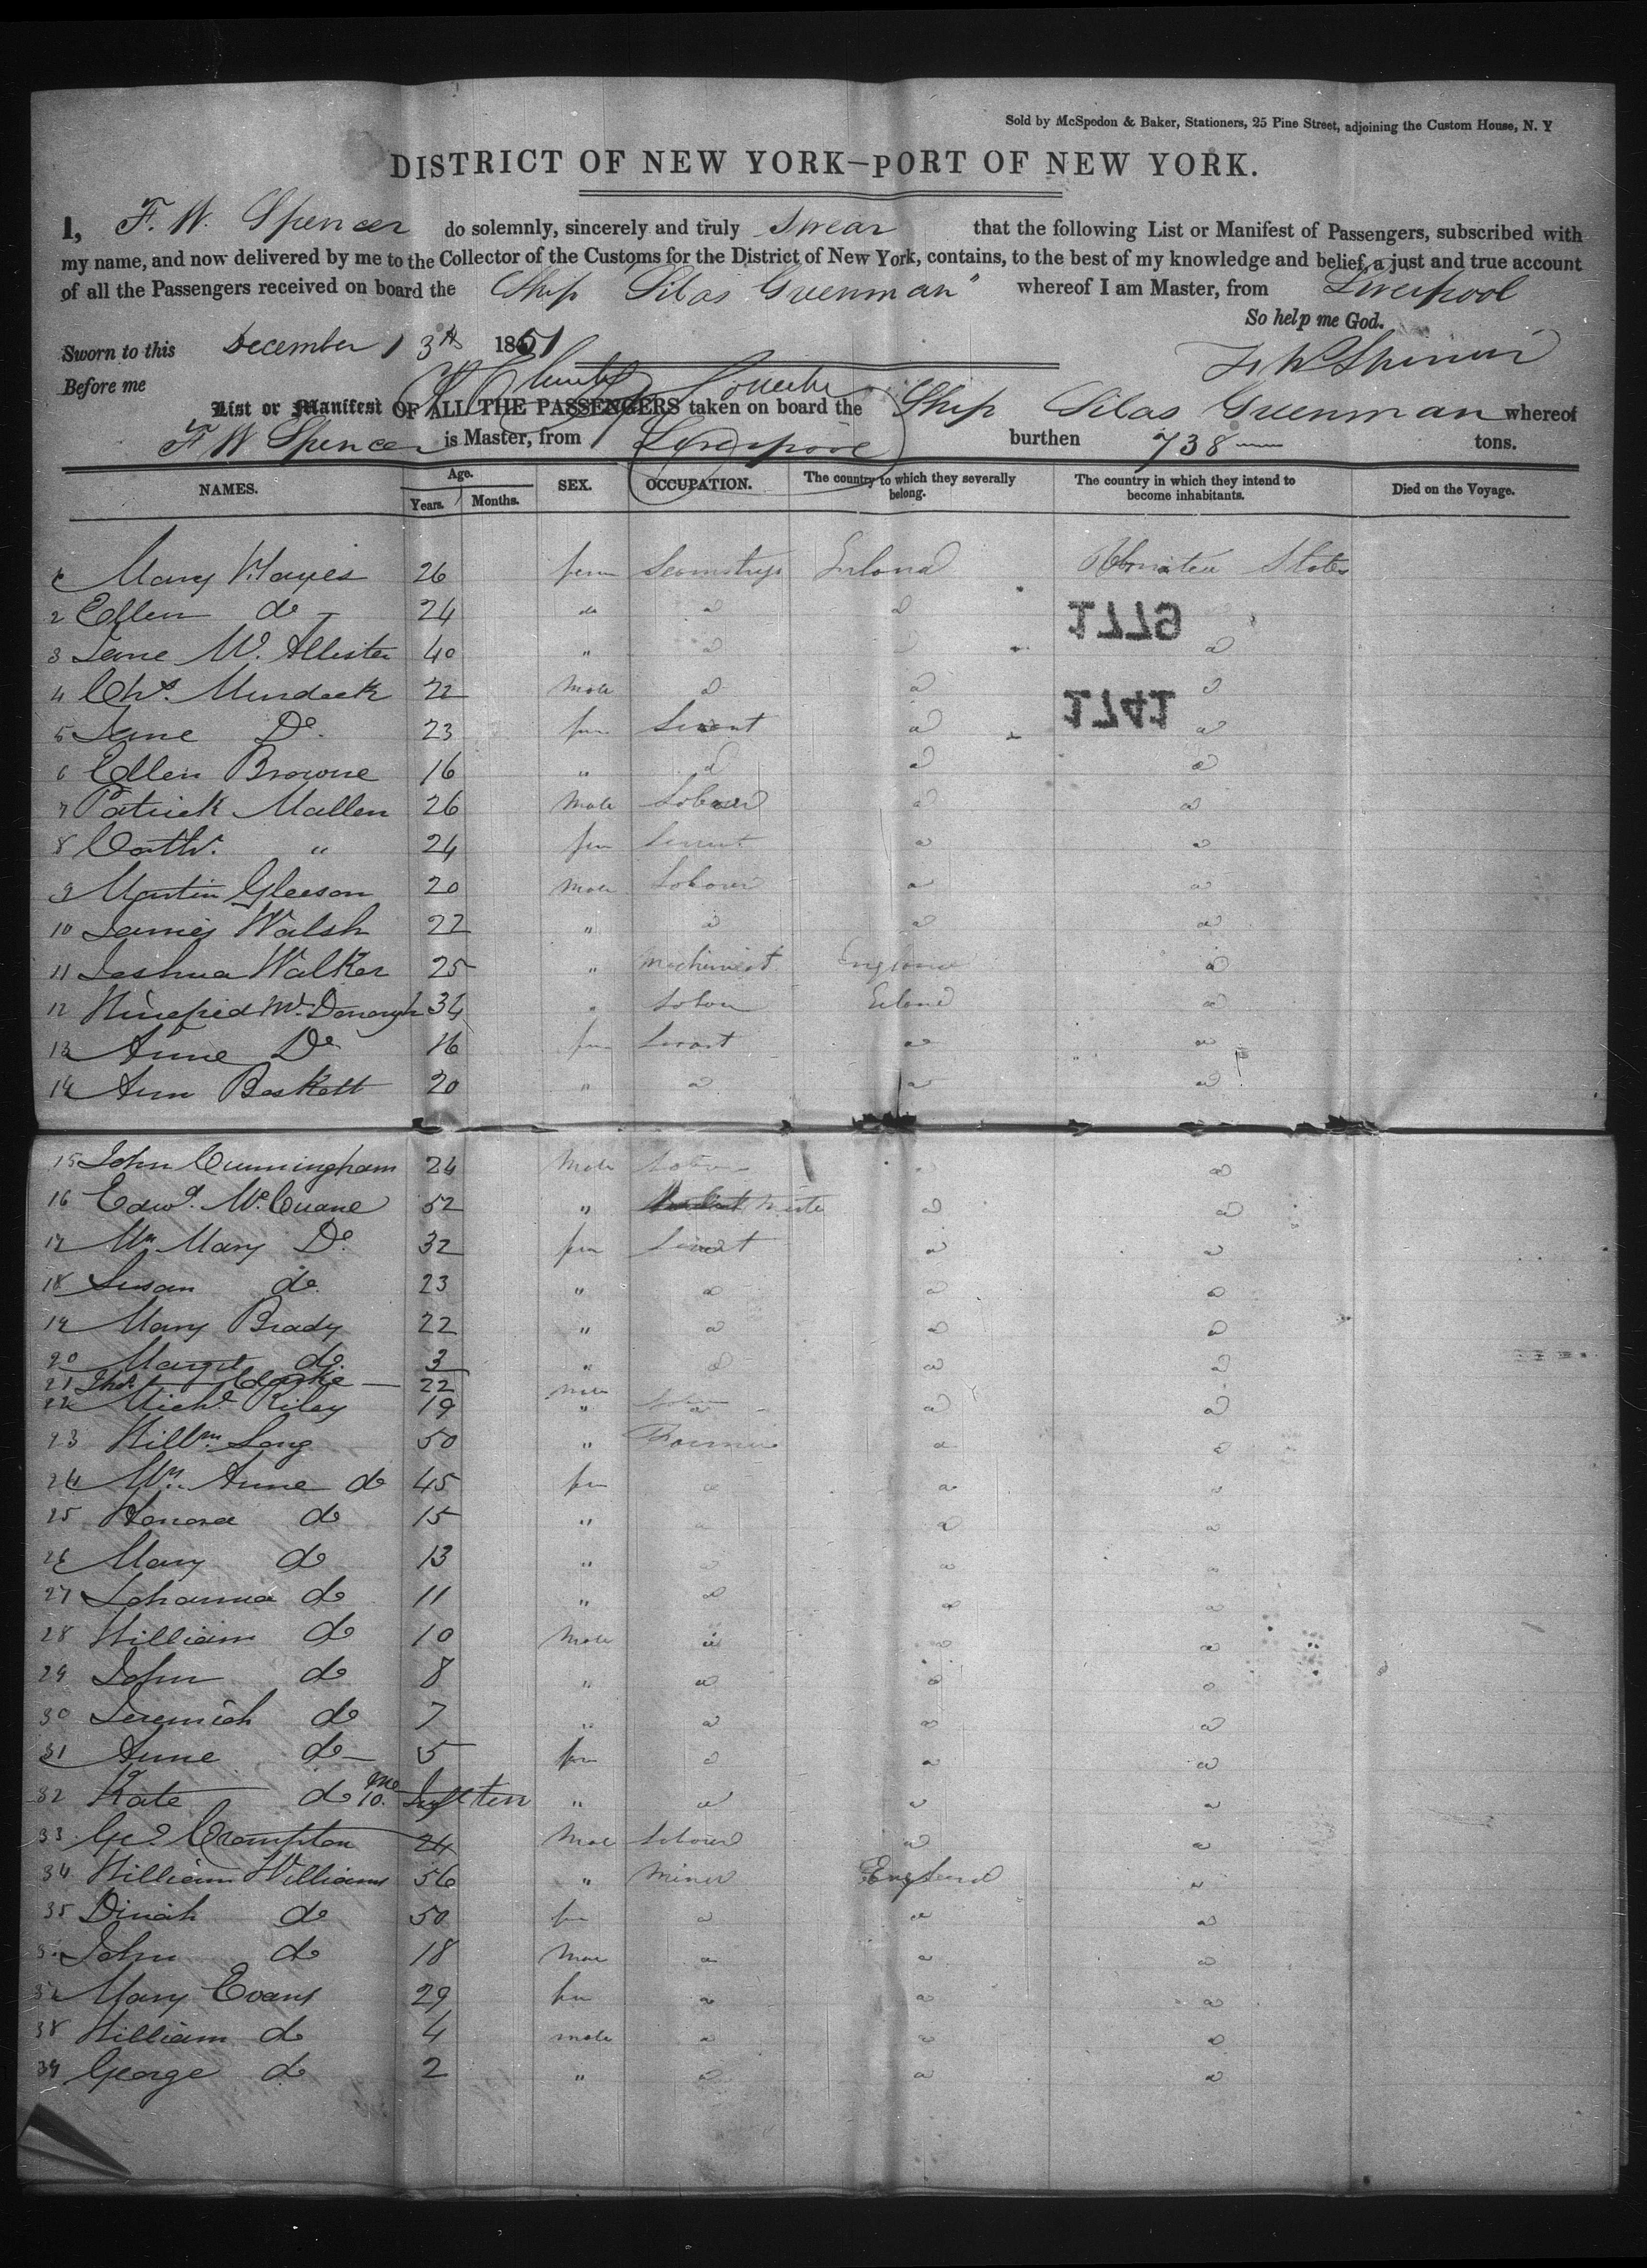 Sold by McSpedon & Baker, Stationers, 25 Pine Street, adjoining the Custom House, N. Y
DISTRICT OF NEW YORK—PORT OF NEW YORK.
I, F. W. Spencer do solemnly, sincerely and truly Swear that the following List or Manifest of Passengers, subscribed with
my name, and now delivered by me to the Collector of the Customs for the District of New York, contains, to the best of my knowledge and belief, a just and true account
of all the Passengers received on board the Ship "Silas Greenman" whereof I am Master, from Liverpool
So help me God.
Sworn to this December 13th 1851
F W Spencer
Before me
List or Manifest OF ALL THE PASSENGERS taken on board the Ship Silas Greenman whereof
F W Spencer is Master, from Liverpool burthen 738 tons.
NAMES. Age. Years. Months. SEX. OCCUPATION. The country to which they severally belong. The country in which they intend to become inhabitants. Died on the Voyage.
1 Mary Hayes 26 fem Seamstress Ireland United States
2 Ellen do 24 do do do
1779
3 Jane Mc Allister 40 " do do do
4 Chs. Murdock 22 Male do do do
1741
5 Jane Do. 23 fem Servant do do
6 Ellen Browne 16 " do do do
7 Patrick Mallen 26 Male Labourer do do
8 Cathr. " 24 fem Servant do do
9 Martin Gleeson 20 Male Labourer do do
10 James Walsh 22 " do do do
11 Joshua Walker 25 " Machinist England do
12 Winefred McDonough 34 " Labour Ireland do
13 Anne Do 16 fem Servant do do
14 Ann Baskett 20 " do do do
15 John Cunningham 24 Male Labour do do
16 Edwd. Mc Cuane 52 " do do
17 Mrs Mary Do. 32 fem Servant do do
18 Susan do. 23 " do do do
19 Mary Brady 22 " do do do
20 Margt do. 3 " do do do
21 Thos. 22 Male
22 Michl. Riley 19 " do do do
23 Willm. Long 50 " Farmer do do
24 Mrs. Anne do 45 fem do do do
25 Honora do 15 " do do do
26 Mary do 13 " do do do
27 Johanna do 11 " do do do
28 William do 10 Male do do do
29 John do 8 " do do do
30 Jeremiah do 7 " do do do
31 Anne do 5 fem do do do
32 Kate do 10 mo Inft ten " do do do
33 Geo Crompton 24 Male Labourer do do
34 William Williams 56 " Miner England do
35 Dinah do 50 fem do do do
36 John do 18 Male do do do
37 Mary Evans 29 fem do do do
38 William do 4 male do do do
39 George do 2 " do do do